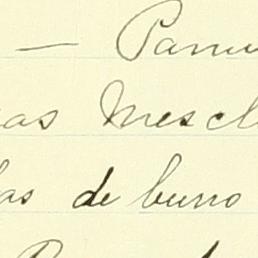 — Panu
as Mescl
as de buno